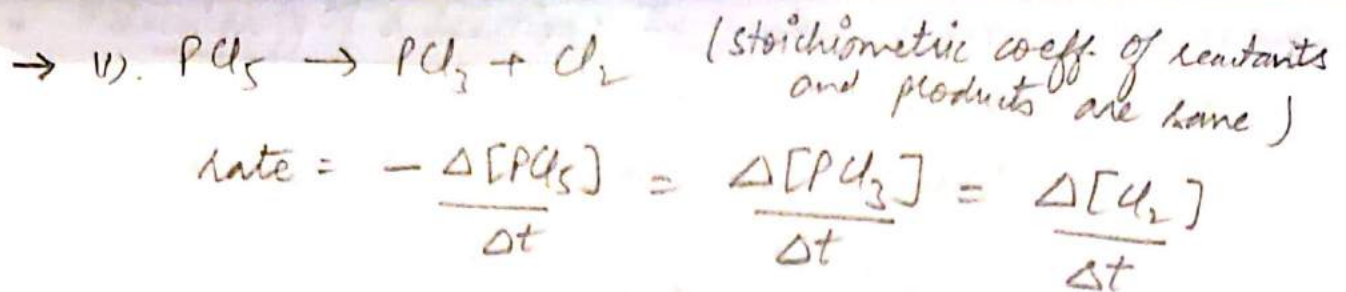 → 1). PCl₅ → PCl₃ + Cl₂ (stoichiometric coeff. of reactants
and products are same)
rate = - Δ[PCl₅]/Δt = Δ[PCl₃]/Δt = Δ[Cl₂]/Δt